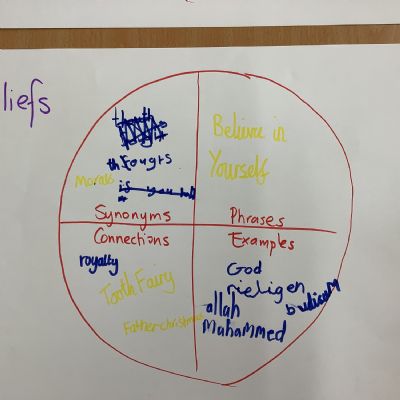 liefs
thfougts
Morals
is you
Synonyms
Believe in
Yourself
Phrases
Connections
royalty
Tooth Fairy
Father christmas
Examples
God
rieligen
allah
Muhammed